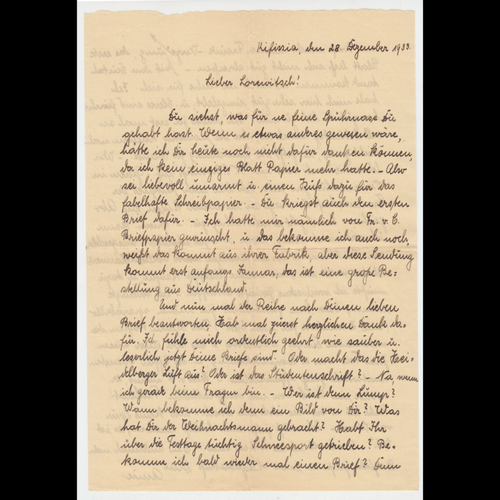 Kifissia, den 28. Dezember 1933.
Lieber Lorewitsch!
Du siehst, was für ne feine Spürnase Du
gehabt hast. Wenn es etwas andres gewesen wäre,
hätte ich Dir heute noch nicht dafür danken können,
da ich kein einziges Blatt Papier mehr hatte. - Also
sei liebevoll umarmt u einen Kuß dazu für das
fabelhafte Schreibpapier. - Du kriegst auch den ersten
Brief dafür. - Ich hatte mir nämlich von Fr. v. C.
Briefpapier gewünscht, u das bekomme ich auch noch,
weißt das kommt aus ihrer Fabrik, aber diese Sendung
kommt erst anfangs Januar, das ist eine große Be-
stellung aus Deutschland.
Und nun mal der Reihe nach Deinen lieben
Brief beantworten. Hab mal zuerst herzlichen Dank da-
für. Id. fühle mich ordentlich geehrt wie sauber u.
leserlich jetzt Deine Briefe sind. Oder macht das die Hei-
delberger Luft aus? Oder ist das Studentenschrift? - Na, wenn
ich gerade beim Fragen bin. - Wer ist denn Lümp?
Wann bekomme ich denn ein Bild von Dir? Was
hat Dir der Weihnachtsmann gebracht? Habt Ihr
über die Festtage tüchtig Schneesport getrieben? Be-
komme ich bald wieder mal einen Brief?